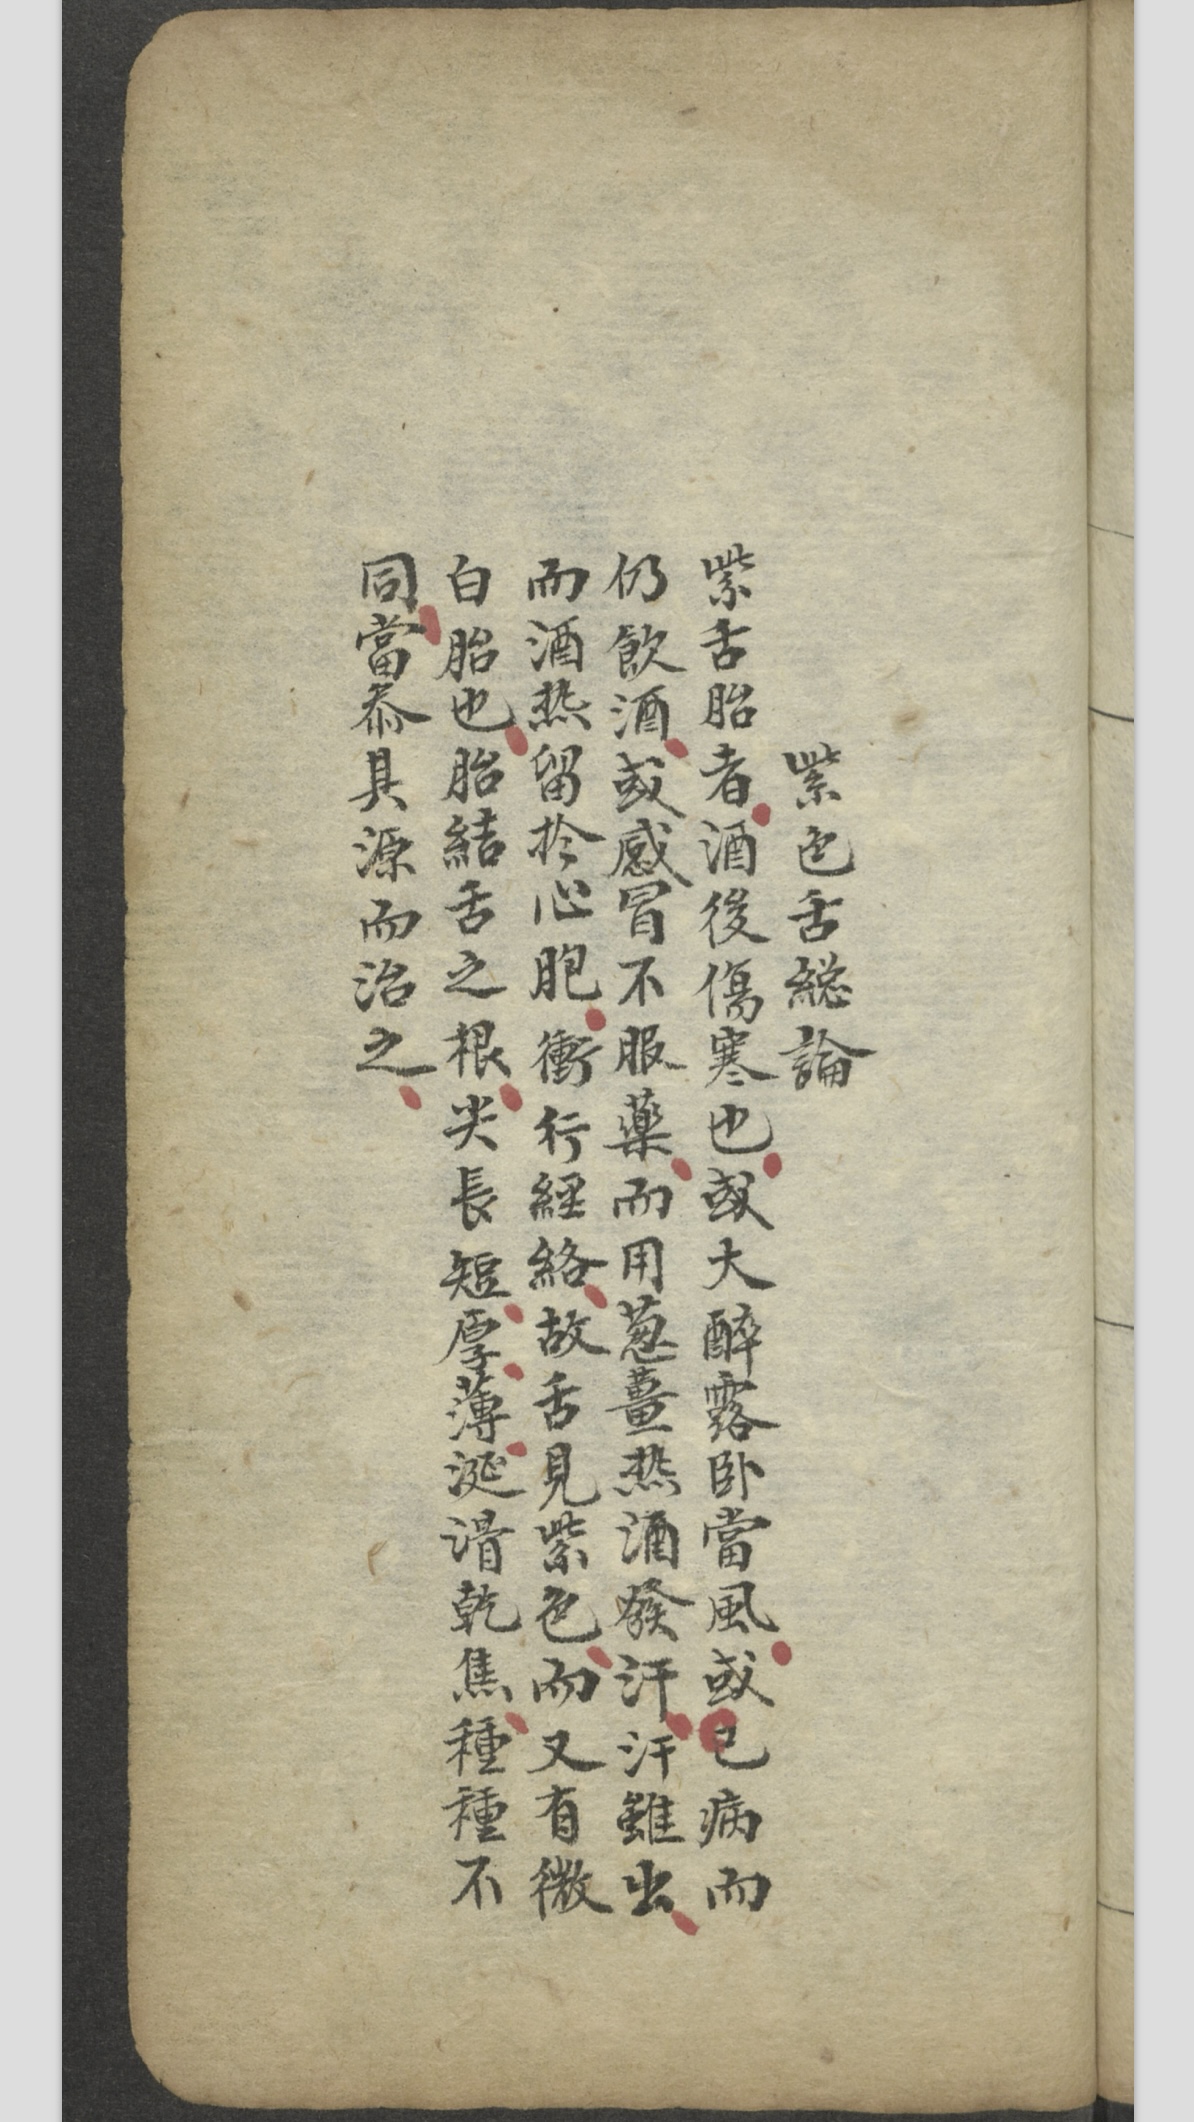 紫色舌總論
紫舌胎者酒後傷寒也或大醉露卧當風或已病而
仍飲酒或感冒不服藥而用葱薑热酒發汗汗雖出
而酒热留扵心胞衝行經絡故舌見紫色而又有微
白胎也胎結舌之根尖長短厚薄涎滑乾焦種種不
同當叅具源而治之